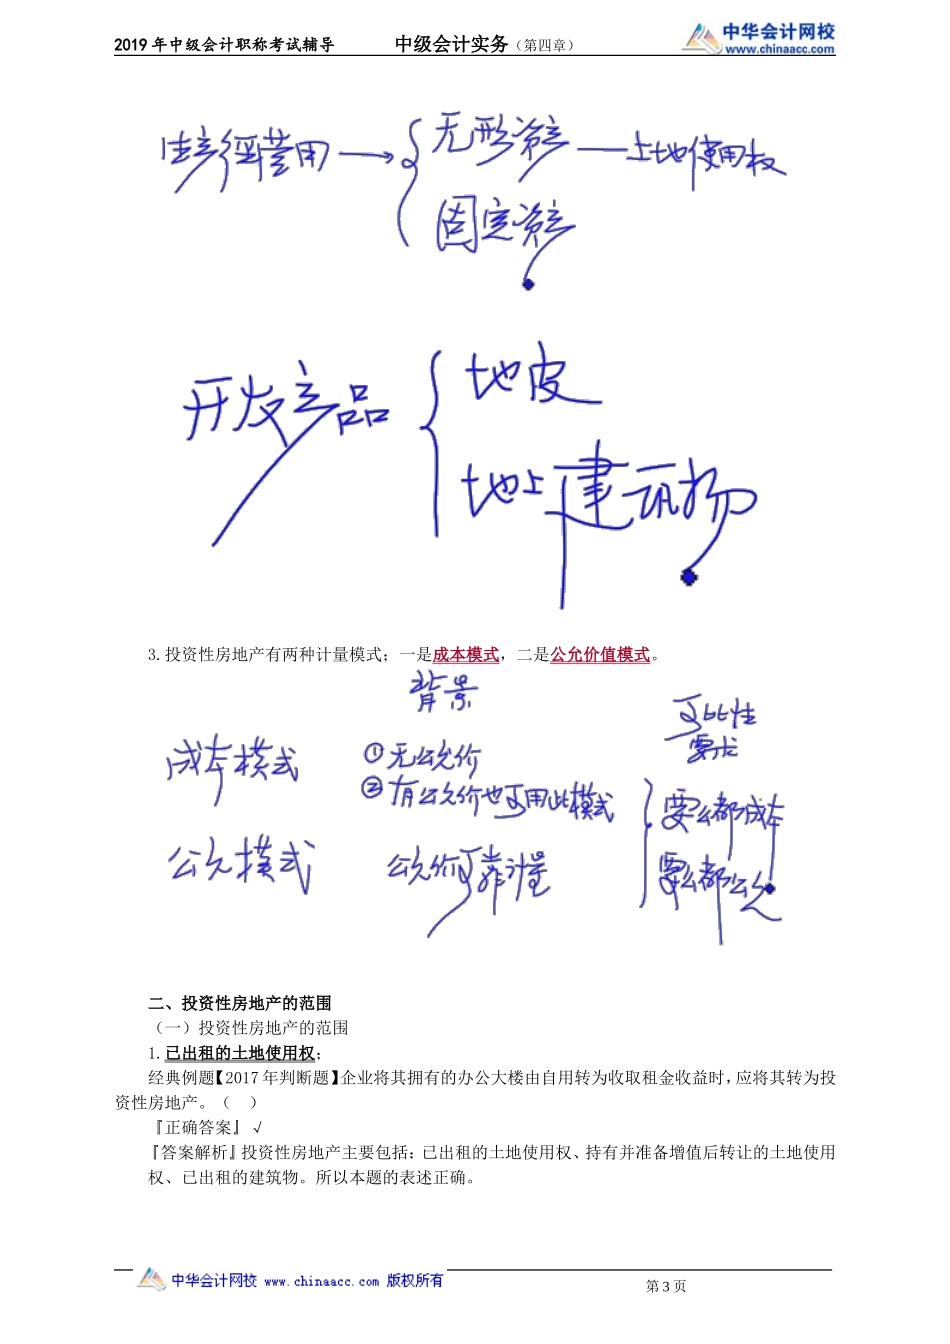 2019年中级会计职称考试辅导 中级会计实务（第四章） 中华会计网校
www.chinaacc.com
生产经营用→{无形资产—土地使用权
固定资产
开发产品{地皮
地上建筑物
3.投资性房地产有两种计量模式；一是成本模式，二是公允价值模式。
背景 可比性
要求
成本模式 ①无公允价
②有公允价也可用此模式 {要么都成本
公允模式 公允价可靠计量 要么都公允
二、投资性房地产的范围
（一）投资性房地产的范围
1.已出租的土地使用权；
经典例题【2017年判断题】企业将其拥有的办公大楼由自用转为收取租金收益时，应将其转为投
资性房地产。（ ）
『正确答案』√
『答案解析』投资性房地产主要包括：已出租的土地使用权、持有并准备增值后转让的土地使用
权、已出租的建筑物。所以本题的表述正确。
中华会计网校 www.chinaacc.com 版权所有
第3页